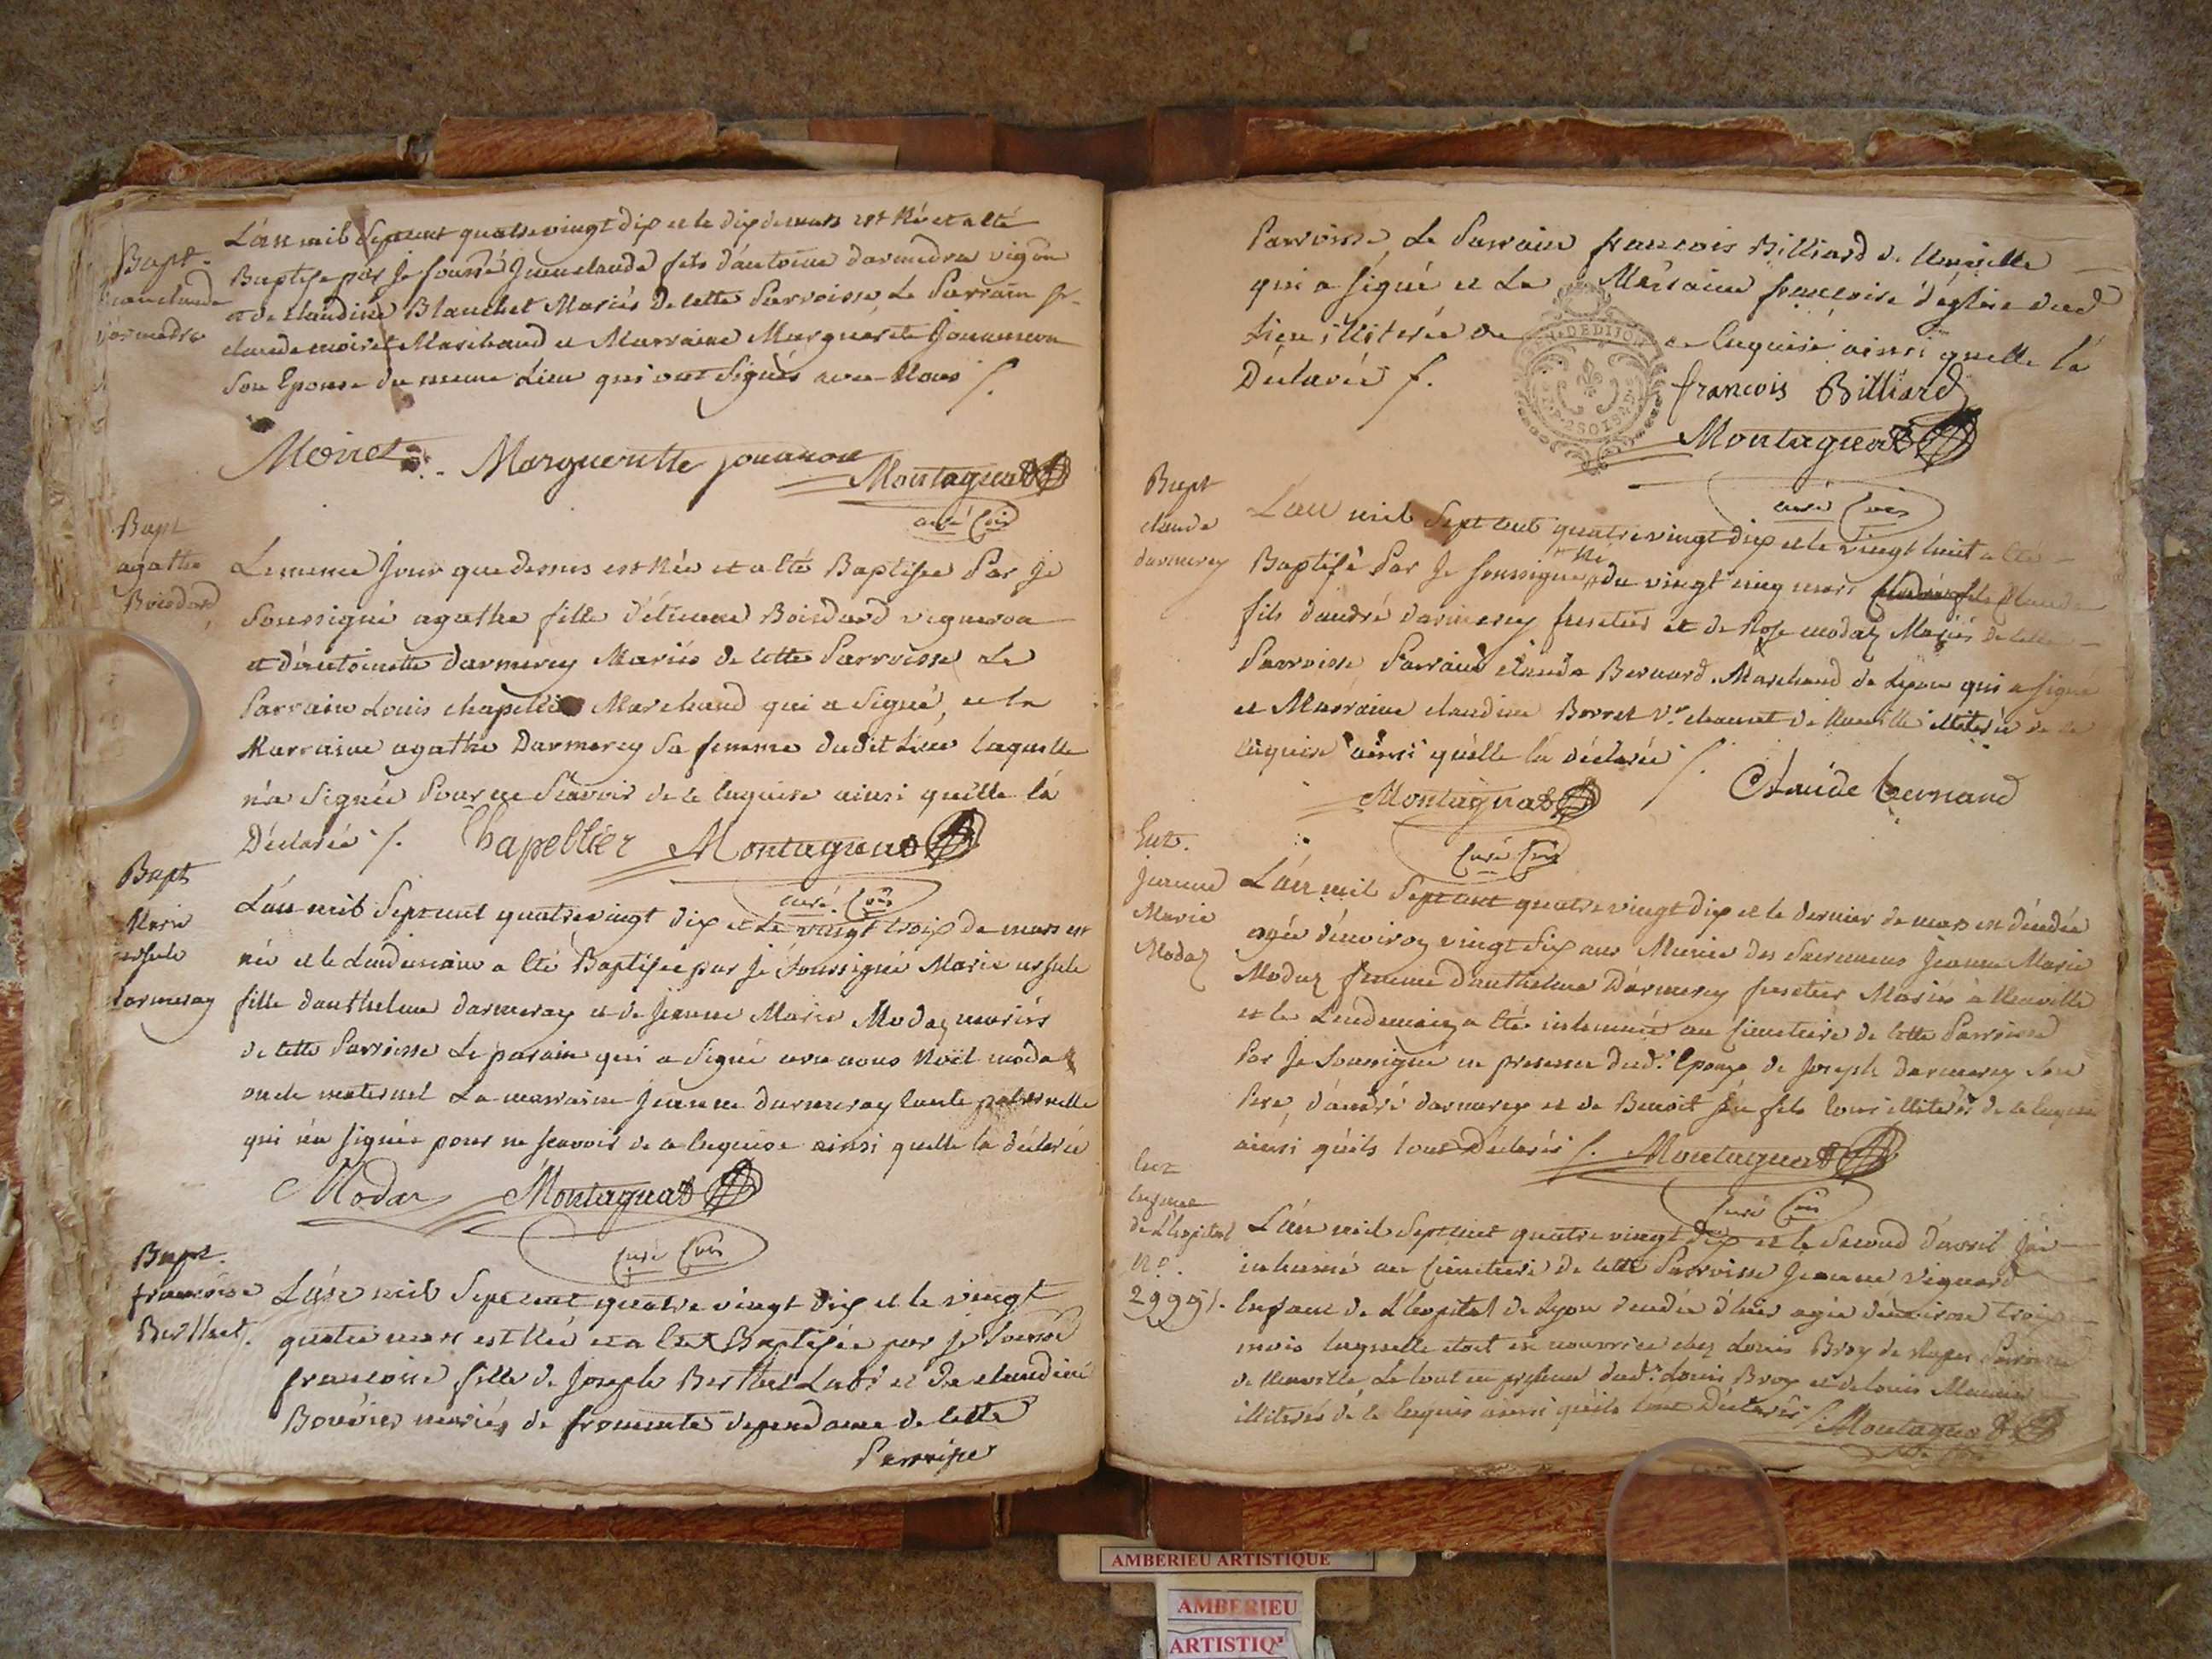 Bapt.
Jeanclaude
Darmedru
L'an mil Septcent quatrevingt dix et le dix de mars est Né et a été
Baptisé par Je soussé Jeanclaude fils d'antoine darmedru vigon
et de Claudine Blanchet Mariés de cette Parroisse Le Parrain Sr
claude moiret Marchand et Marraine Marguerite Jouannon
son Epouse du meme Lieu qui ont Signés avec Nous /.
Moiret Margueritte jouanon Montagnat
curé
Bapt
agathe
Boisdard
Le meme Jour que dessus est Née et a été Baptisée Par Je
Soussigné agathe fille d'étienne Boisdard vigneron
et d'antoinette darmerey Mariés de cette Parroisse Le
Parrain Louis chapellier Marchand qui a Signé, et la
Marraine agathe Darmerey Sa femme dudit Lieu laquelle
n'a Signée Pour ne Scavoir de ce Enquise ainsi quelle la
Déclarée /. Chapellier Montagnat
curé
Bapt
Marie
ursule
darmeray
L'an mil Septcent quatrevingt dix et Le vingt trois de mars est
née et le Lendemain a été Baptisée par Je Soussigné Marie ursule
fille danthelme darmeray et de Jeanne Marie Modaz mariés
de cette Parroisse Le parain qui a Signé avec nous Noël modaz
oncle maternel La marraine Jeanne darmeray tante paternelle
qui n'a signée pour ne scavoir de ce Enquise ainsi quelle la déclarée
Modaz Montagnat
Curé
Bapt.
francoise
Berthet.
L'an mil Septcent quatre vingt dix et le vingt
quatre mars est Née et a été Baptisée par je Soussé
francoise fille de Joseph Berthet Labr et de claudine
Bouvier mariés de fromente dependance de cette
Parroisse
Parroisse, Le Parrain francois Billiard de Neuville
qui a signé et La Marraine francoise d'église dud
Lieu illiterée de ce Enquise ainsi quelle la
Déclarée /.
francois Billiard
Montagnat
curé
Bapt
claude
darmerey
L'an mil Sept cent quatrevingt dix et le vingt huit a été
Né
Baptisé Par Je Soussigné du vingt cinq mars Claude
fils d'andré darmerey fruitier et de Rose modaz Mariés de cette
Parroisse Parrain claude Bernard Marchand de Lyon qui a signé
et Marraine claudine Borret Ve de Neuville illiterée de ce
Enquise ainsi qu'elle la déclarée /.
Montagnat Claude bernard
Curé
Ent.
Jeanne
Marie
Modaz
L'an mil Septcent quatre vingt dix et le dernier de mars est décédée
agée d'environ vingt Six ans Munie des Sacremens Jeanne Marie
Modaz femme d'anthelme Darmerey fruitier Mariés à Neuville
et le Lendemain a été inhumée au Cimetiere de cette Parroisse
Par Je Soussigné en presence dud. Epoux de Joseph darmerey Son
Pere, d'andré darmerey et de Benoit fils tous illiterés de ce Enquis
ainsi qu'ils l'ont Déclarés /. Montagnat
Curé
Ent
Enfant
de L'hopital
No.
29991.
L'an mil Septcent quatre vingt dix et le Second d'avril J'ai
inhumé au Cimetiere de cette Parroisse Jeanne vignard
Enfant de L'hopital de Lyon décédée d'hier agée d'environ trois
mois laquelle étoit en nourrice chez Louis Broy de
de Neuville Le tout en presence dud. Louis Broy et de Louis
illiterés de ce Enquis ainsi qu'ils l'ont Déclarés /. Montagnat
AMBERIEU ARTISTIQUE
AMBERIEU
ARTISTIQ